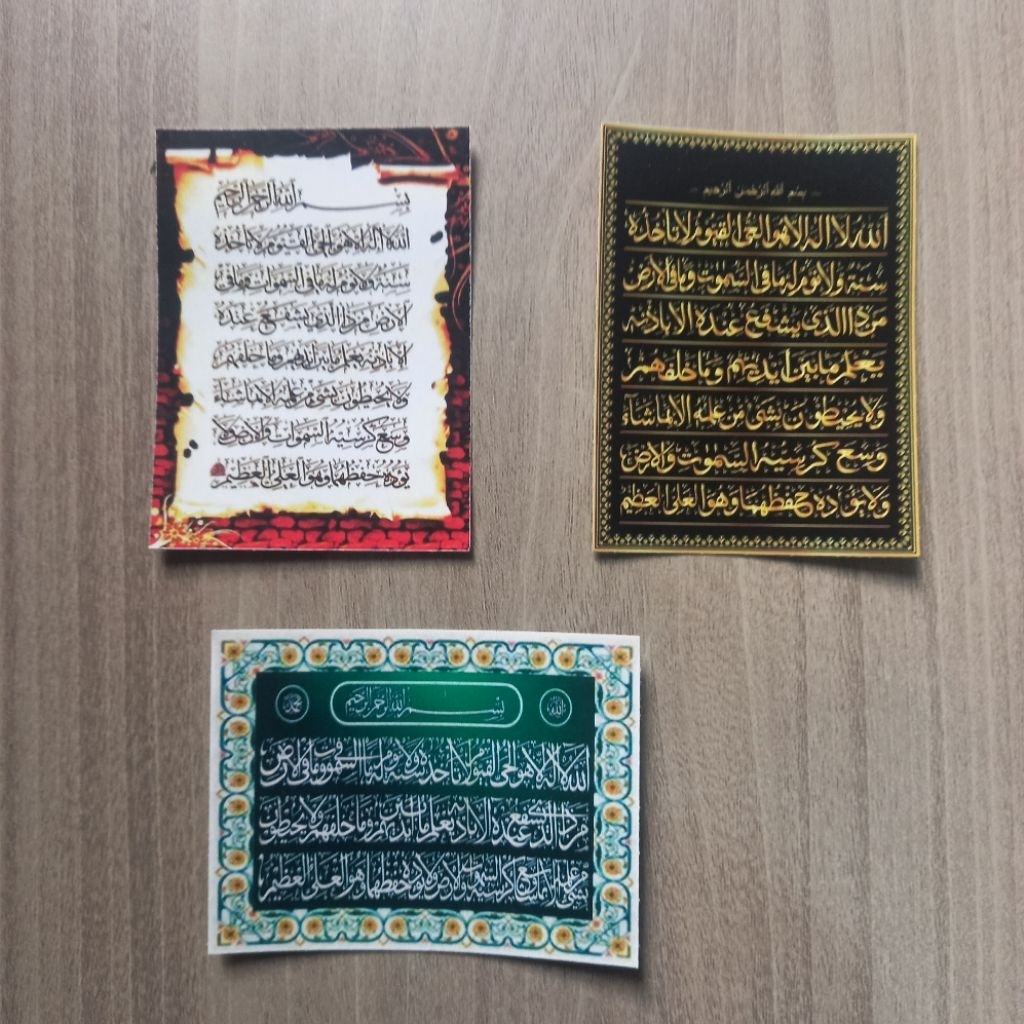 بِسْمِ اللَّهِ الرَّحْمَٰنِ الرَّحِيمِ
اللَّهُ لَا إِلَٰهَ إِلَّا هُوَ الْحَيُّ الْقَيُّومُ لَا تَأْخُذُهُ
سِنَةٌ وَلَا نَوْمٌ لَهُ مَا فِي السَّمَوَاتِ وَمَا فِي
الْأَرْضِ مَنْ ذَا الَّذِي يَشْفَعُ عِنْدَهُ
إِلَّا بِإِذْنِهِ يَعْلَمُ مَا بَيْنَ أَيْدِيهِمْ وَمَا خَلْفَهُمْ
وَلَا يُحِيطُونَ بِشَيْءٍ مِنْ عِلْمِهِ إِلَّا بِمَا شَاءَ
وَسِعَ كُرْسِيُّهُ السَّمَوَاتِ وَالْأَرْضَ وَلَا
يَئُودُهُ حِفْظُهُمَا وَهُوَ الْعَلِيُّ الْعَظِيمُ
بسم الله الرحمن الرحيم
الله لا اله الا هو الحي القيوم لا تأخذه
سنة ولا نوم له ما في السموت وما في الأرض
من ذا الذي يشفع عنده الا باذنه
يعلم ما بين ايديهم وما خلفهم
ولا يحيطون بشئ من علمه الا بما شاء
وسع كرسيه السموت والارض
ولا يؤده حفظهما وهو العلي العظيم
محمد
بسم الله الرحمن الرحيم
الله
الله لا اله الا هو الحي القيوم لا تأخذه سنة ولا نوم له ما في السموات وما في الارض
من ذا الذي يشفع عنده الا باذنه يعلم ما بين ايديهم وما خلفهم ولا يحيطون
بشئ من علمه الا بما شاء وسع كرسيه السموات والارض ولا يؤده حفظهما وهو العلي العظيم